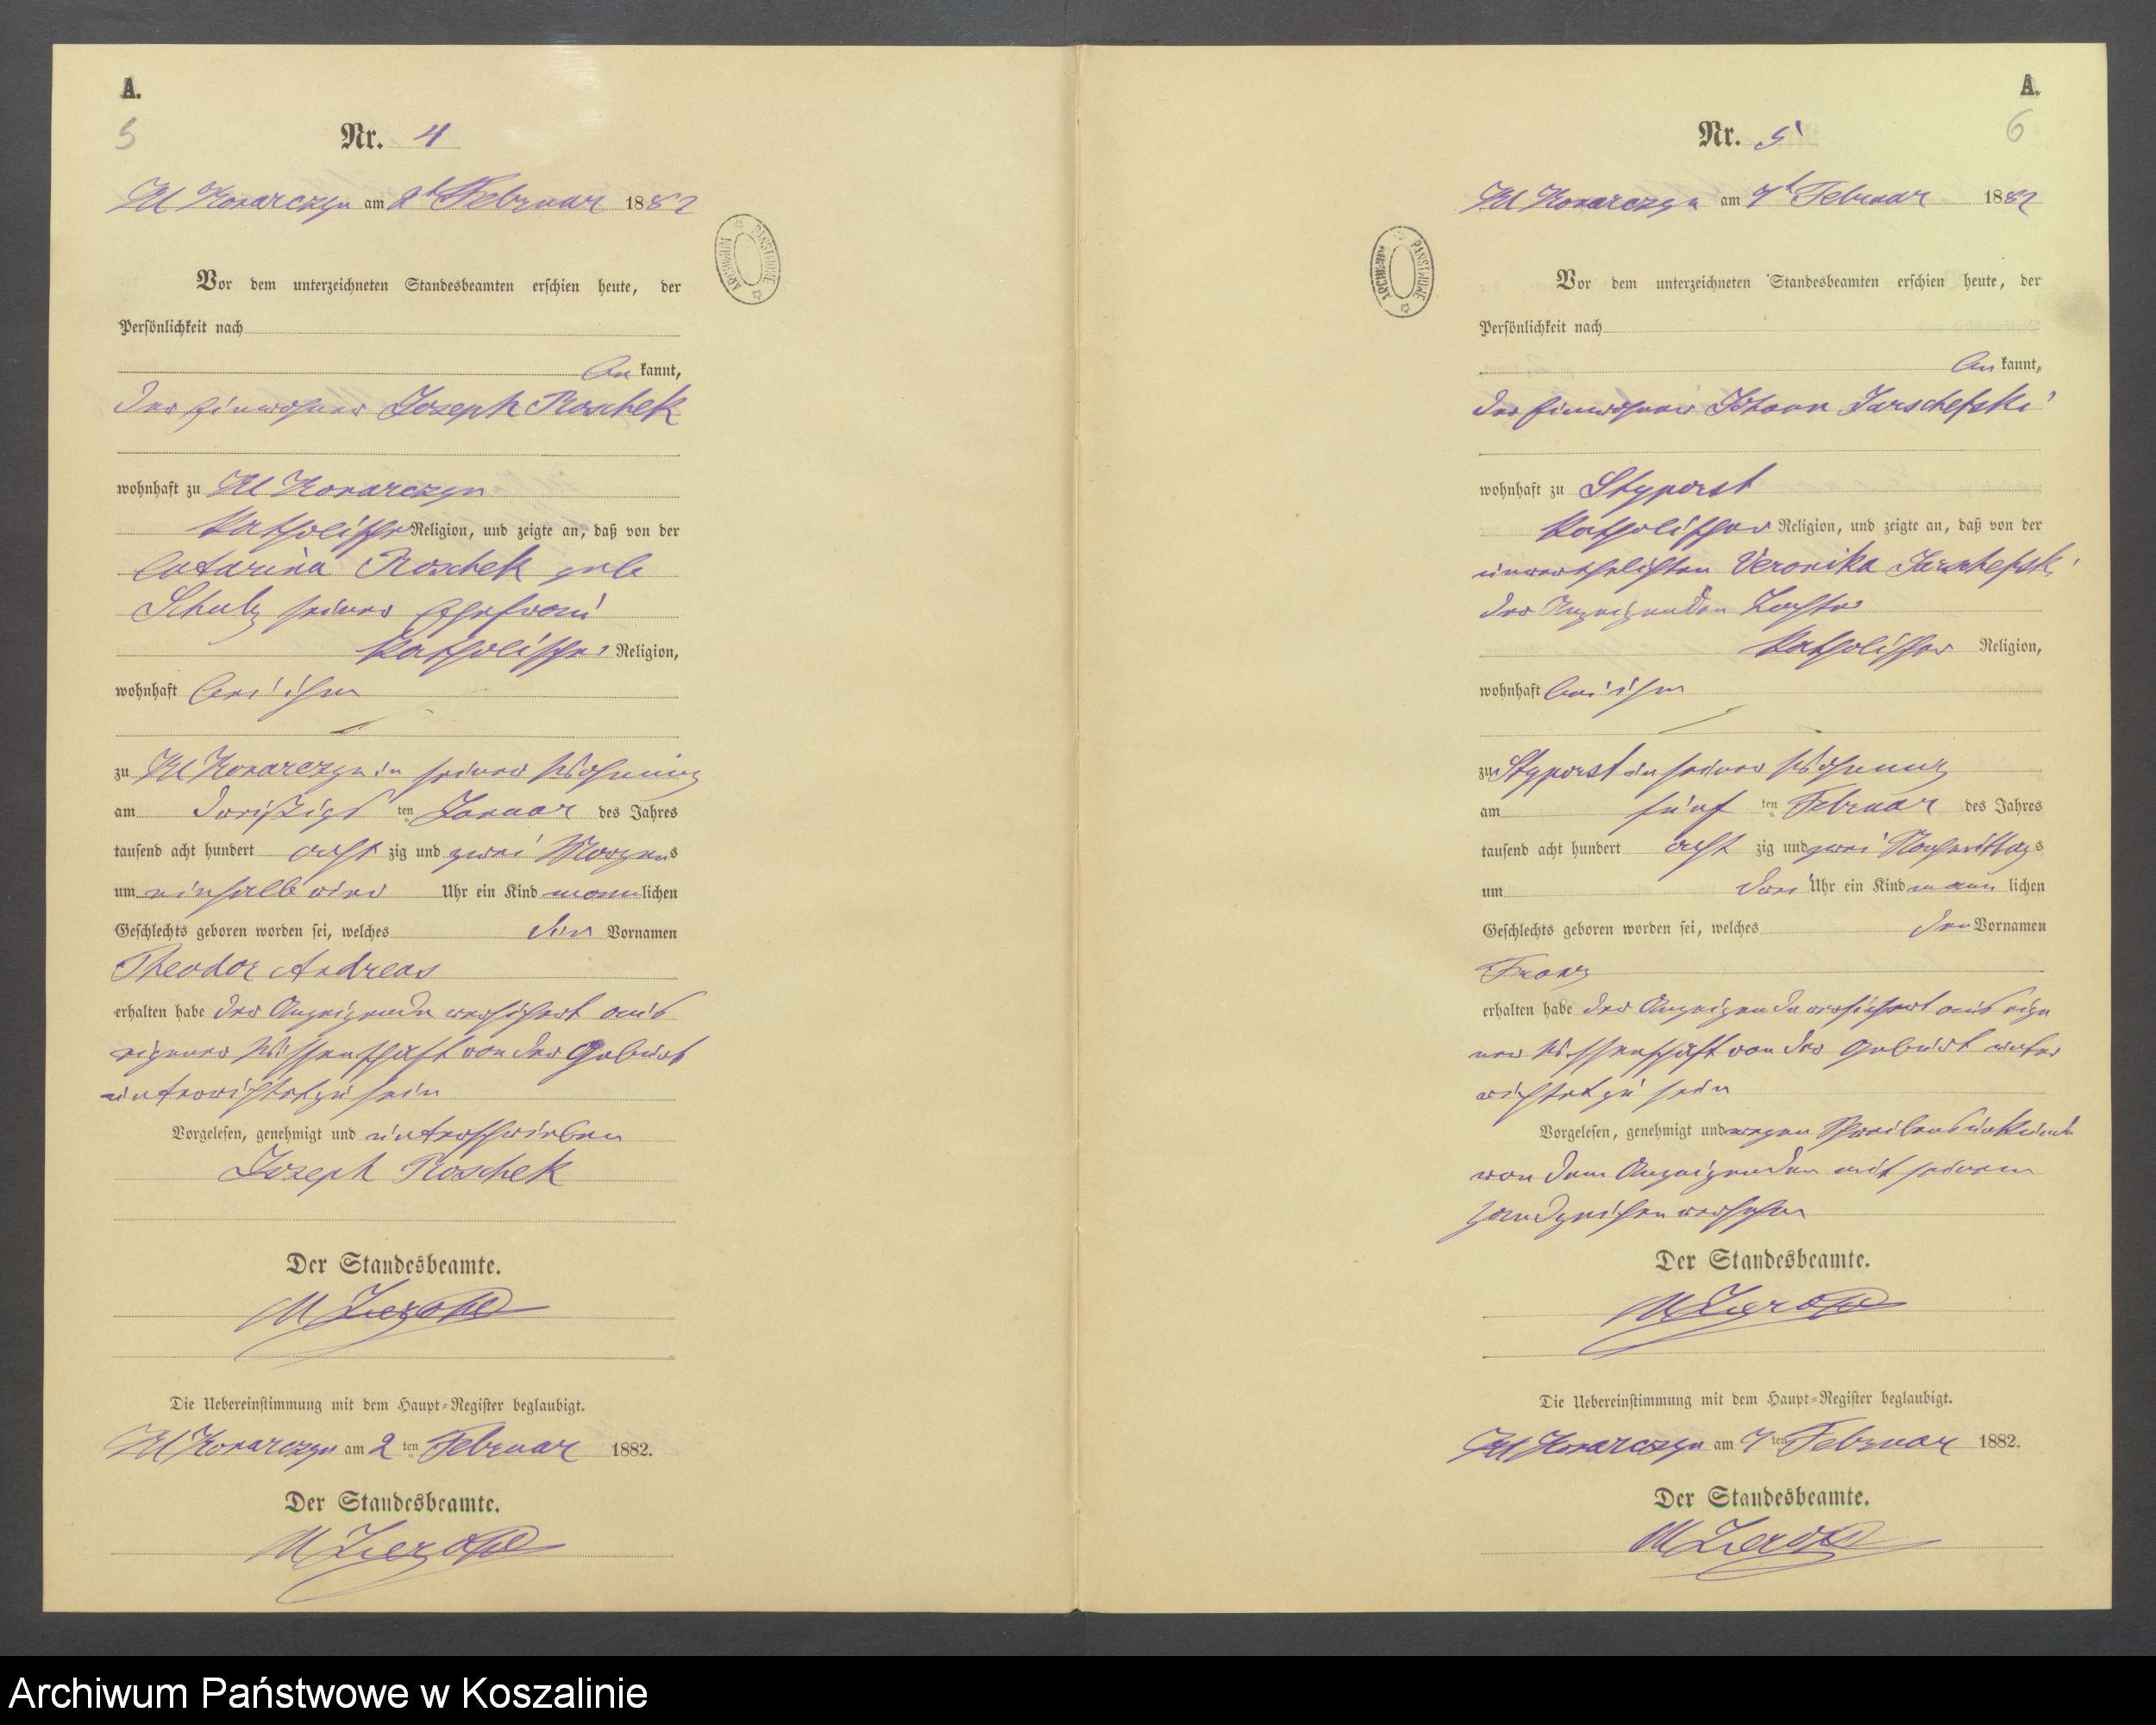 A.
5
Nr. 4
Kl Konarczyn am 2t Februar 1882
Vor dem unterzeichneten Standesbeamten erschien heute, der
Persönlichkeit nach
be kannt,
der Einwohner Joseph Roschek
wohnhaft zu Kl Konarczyn
katholischer Religion, und zeigte an, daß von der
Catarina Roschek geb
Schulz seiner Ehefrau
katholischer Religion,
wohnhaft bei ihm
zu Kl Konarczyn in seiner Wohnung
am dreißigs ten Januar des Jahres
tausend acht hundert acht zig und zwei Morgens
um einhalb vier Uhr ein Kind männlichen
Geschlechts geboren worden sei, welches den Vornamen
Theodor Andreas
erhalten habe der Anzeigende versichert aus
eigener Wissenschaft von der Geburt
unterrichtet zu sein
Vorgelesen, genehmigt und unterschrieben
Joseph Roschek
Der Standesbeamte.
Die Uebereinstimmung mit dem Haupt-Register beglaubigt.
Kl Konarczyn am 2 ten Februar 1882.
Der Standesbeamte.
ARCHIWUM PAŃSTWOWE
A.
6
Nr. 5
Kl Konarczyn am 7t Februar 1882
Vor dem unterzeichneten Standesbeamten erschien heute, der
Persönlichkeit nach
be kannt,
der Einwohner Johann Jarschefski
wohnhaft zu Styporst
katholischer Religion, und zeigte an, daß von der
unverehelichten Veronika Jarschefski
des Anzeigenden Tochter
katholischer Religion,
wohnhaft bei ihm
zu Styporst in seiner Wohnung
am fünf ten Februar des Jahres
tausend acht hundert acht zig und zwei Nachmittags
um drei Uhr ein Kind männ lichen
Geschlechts geboren worden sei, welches den Vornamen
Franz
erhalten habe der Anzeigende versichert aus eige
ner Wissenschaft von der Geburt unter
richtet zu sein
Vorgelesen, genehmigt und wegen Schreibensunkunde
von dem Anzeigenden mit seinem
Handzeichen versehen
Der Standesbeamte.
Die Uebereinstimmung mit dem Haupt-Register beglaubigt.
Kl Konarczyn am 7 ten Februar 1882.
Der Standesbeamte.
ARCHIWUM PAŃSTWOWE
Archiwum Państwowe w Koszalinie